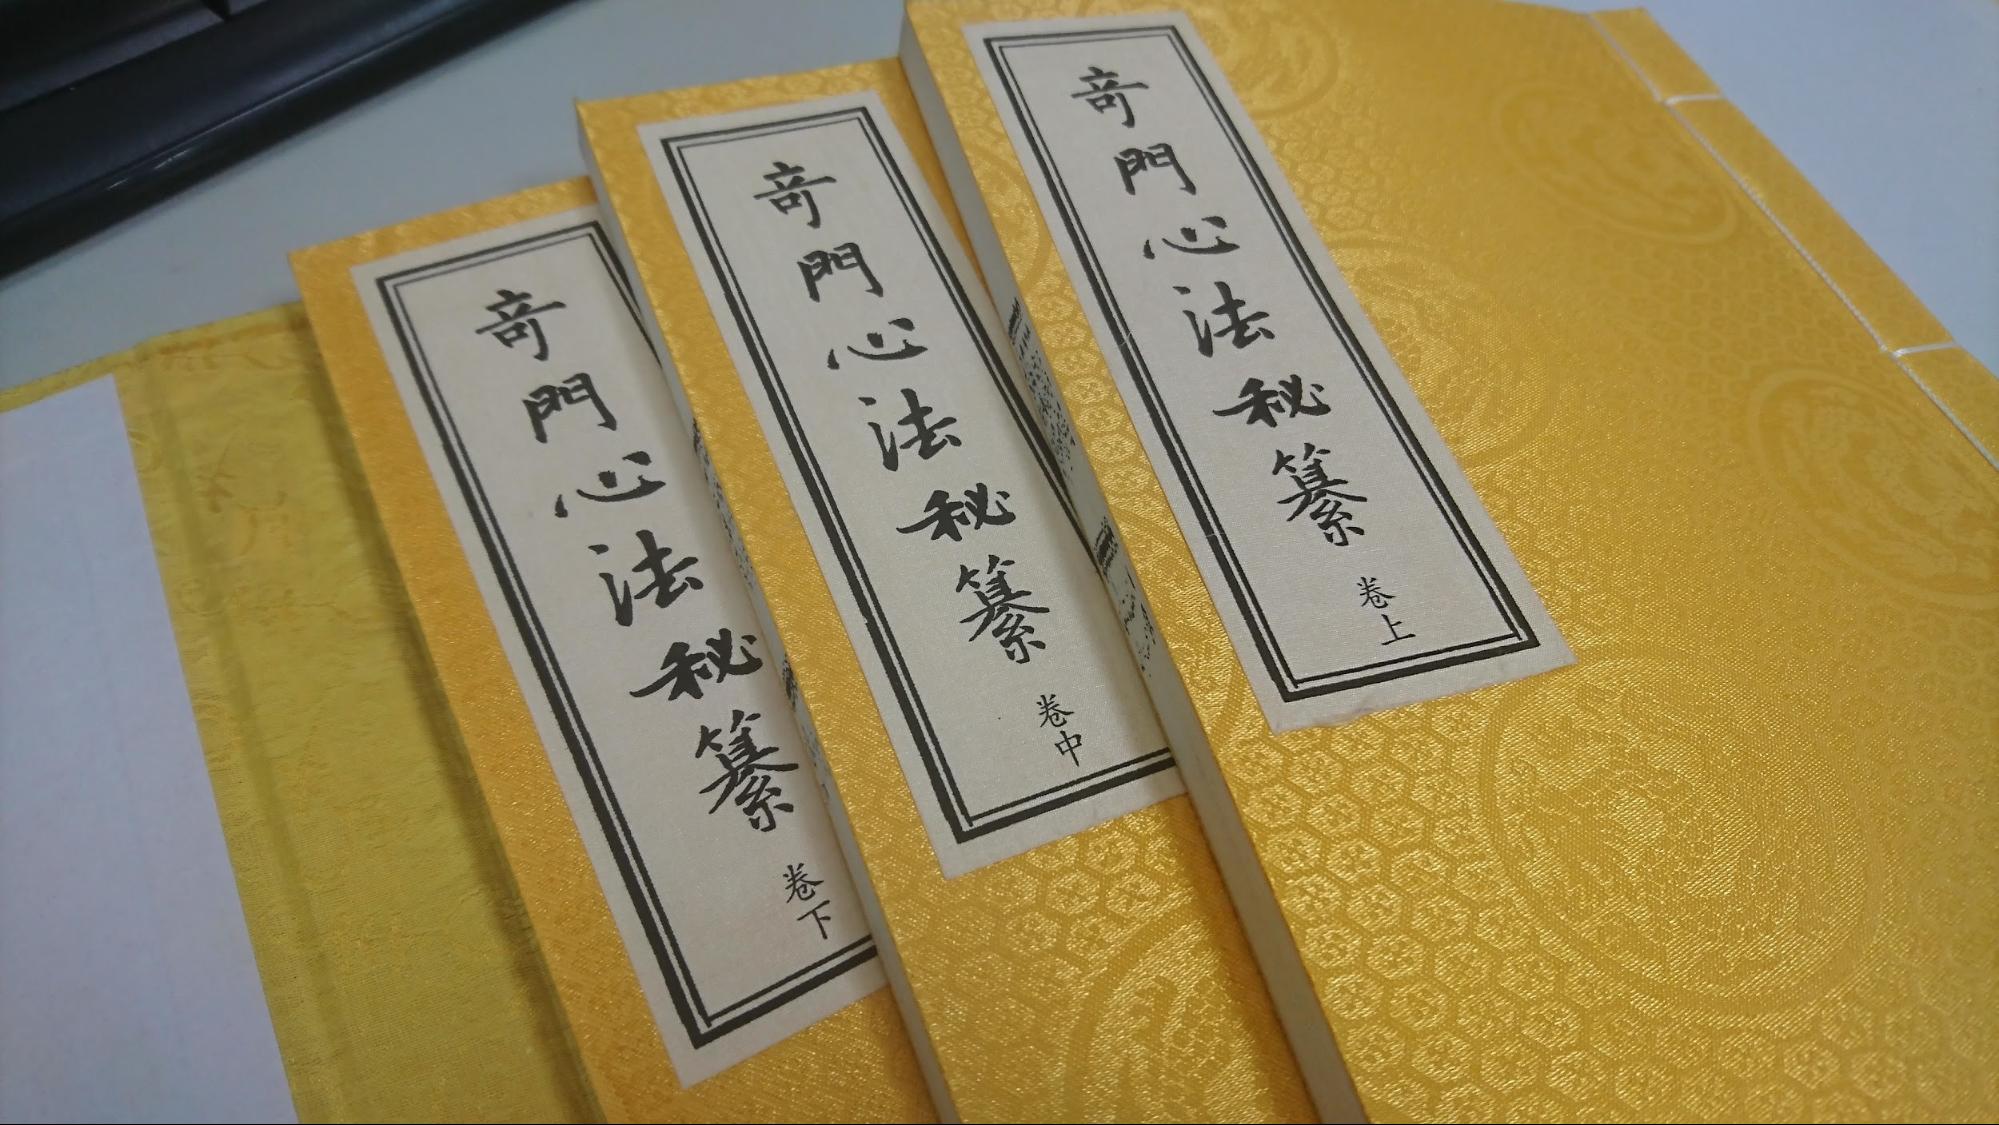 奇門心法秘纂
卷上
奇門心法秘纂
卷中
奇門心法秘纂
卷下